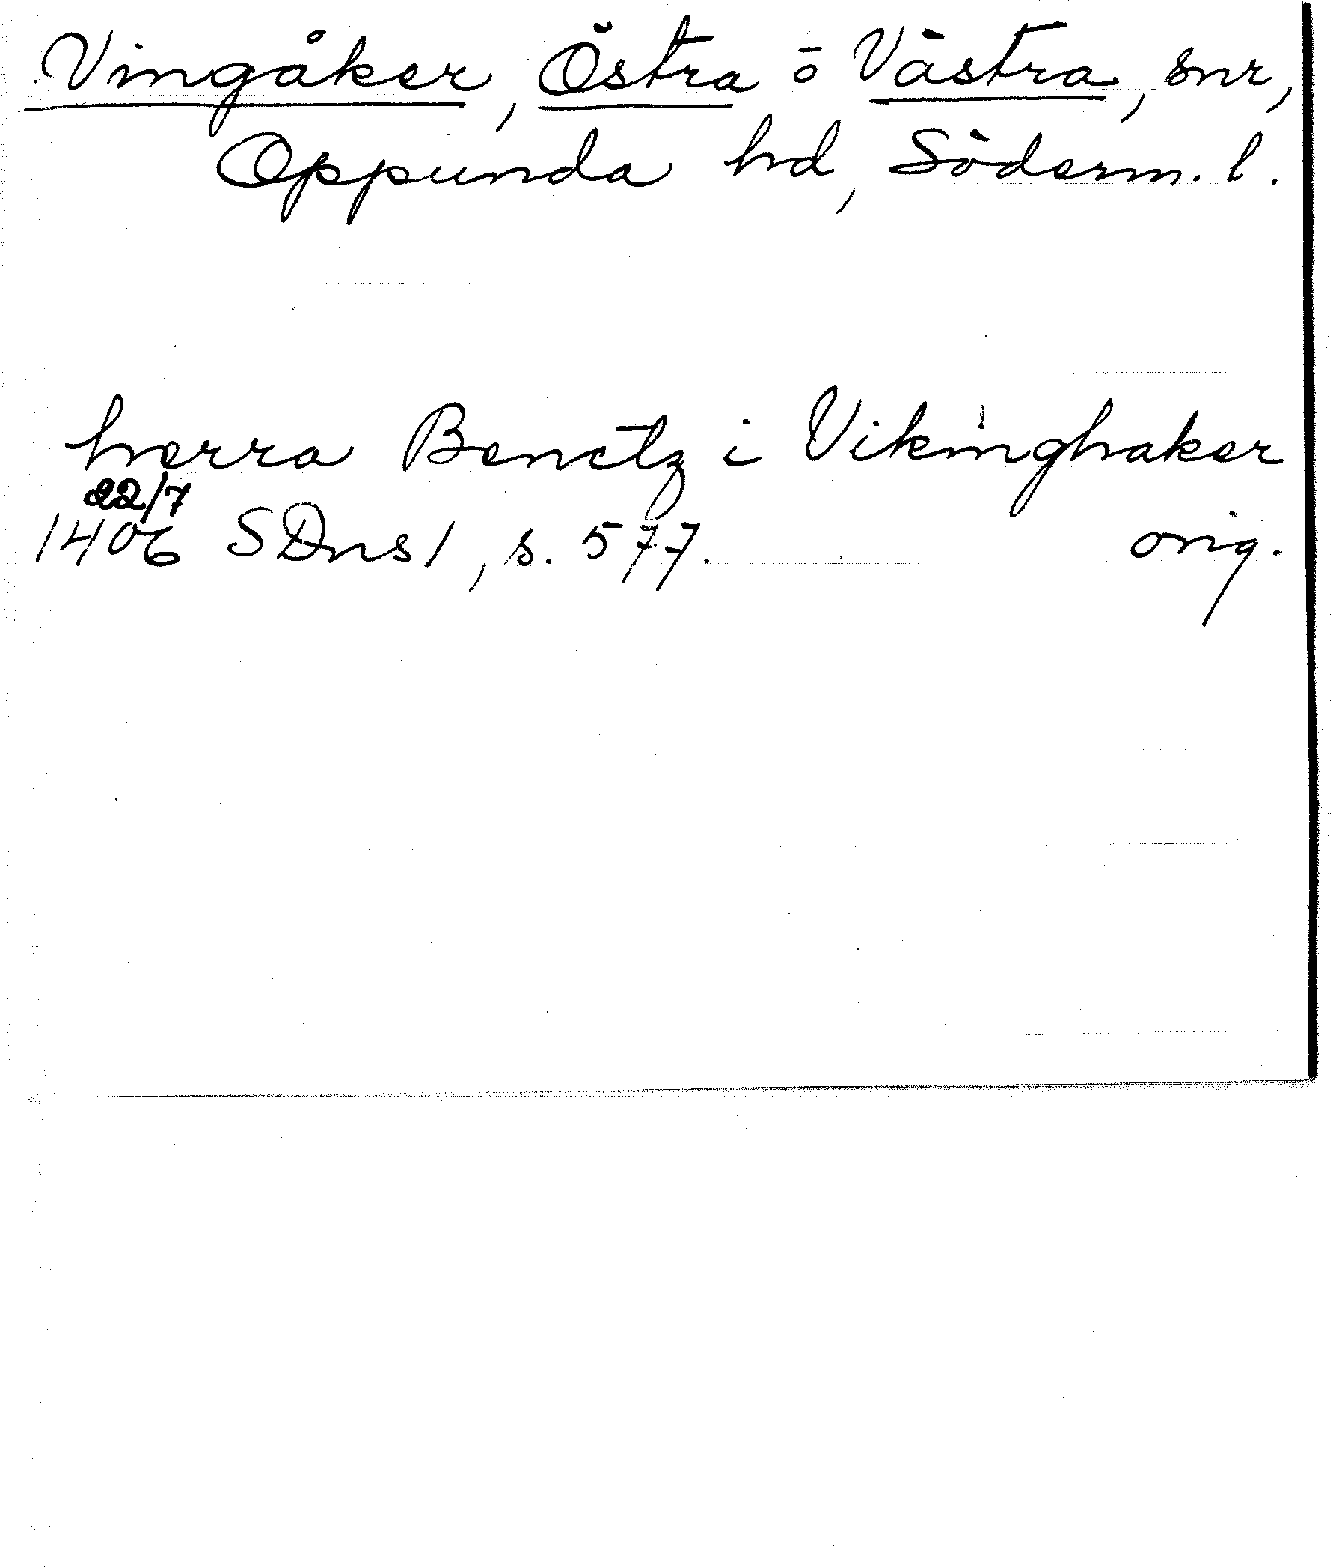 Vingåker, Östra o Västra, snr,
Oppunda hd, Söderm. l.
herra Benctz i Vikinghaker
22/7
1406 SDns 1, s. 577. orig.